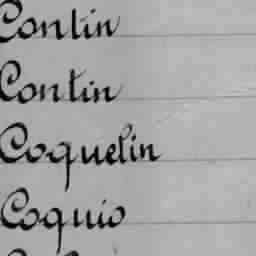 Contin
Contin
Coquelin
Coquio